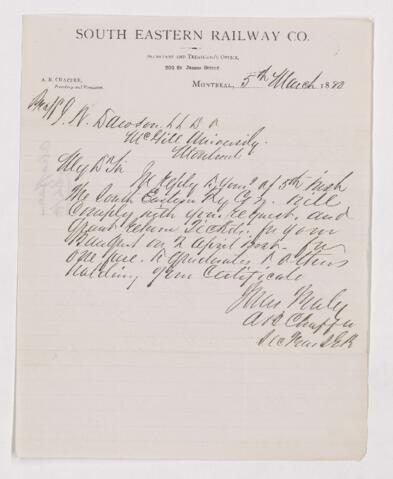 SOUTH EASTERN RAILWAY CO.
SECRETARY AND TREASURER'S OFFICE,
202 St James Street
A. B. CHAFFEE,
Secretary and Treasurer.
MONTREAL, 5th March 1880
J. W. Dawson LL D
McGill University
Montreal
My Dr Sir
In reply to yours of 5th Inst
The South Eastern Ry Co. will
comply with your request, and
grant return Tickets to your
Banquet on 2 April for
one fare. To graduates & others
holding your Certificate
Yours Truly
A B Chaffee
Sec Treas S E R